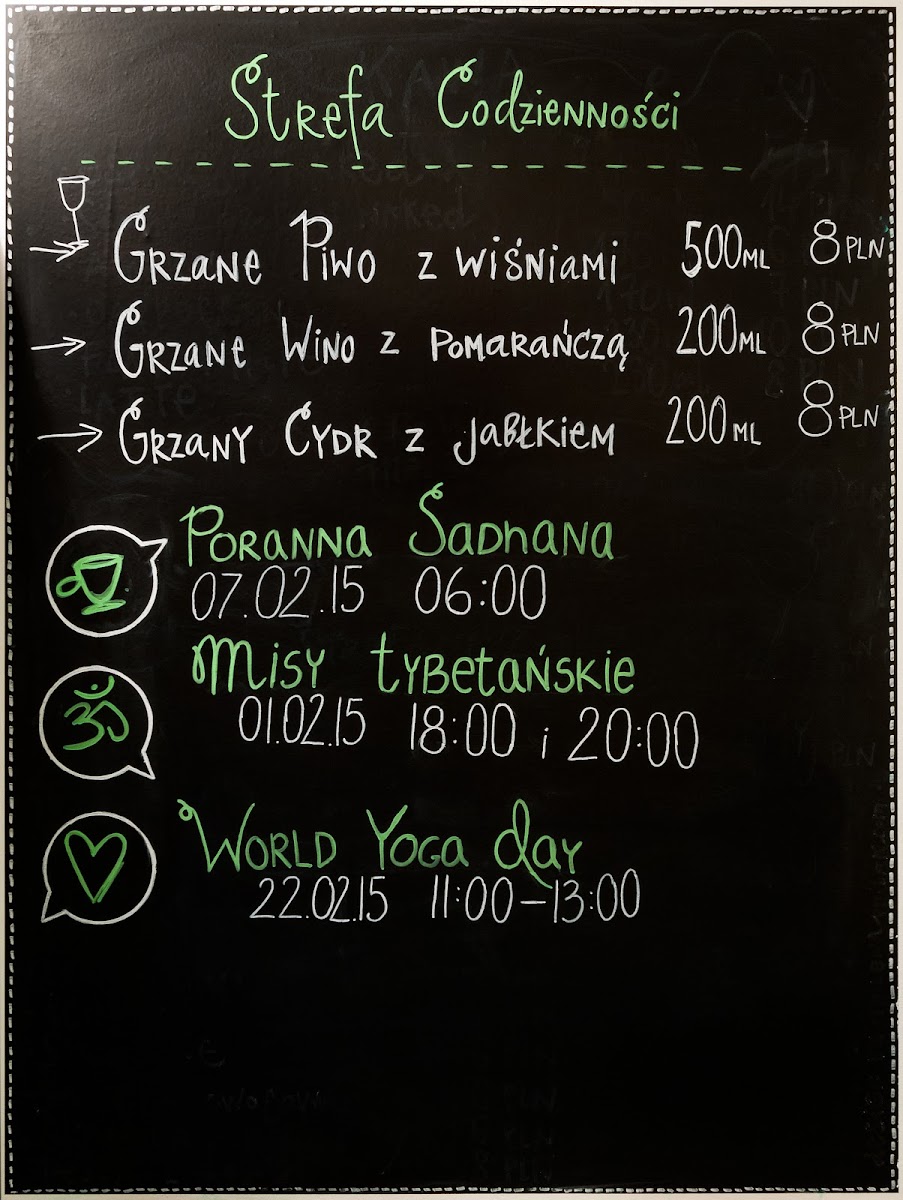 Strefa Codzienności
Grzane Piwo z wiśniami 500ml 8 PLN
Grzane Wino z pomarańczą 200ml 8 PLN
Grzany Cydr z jabłkiem 200ml 8 PLN
Poranna Sadhana
07.02.15 06:00
Misy tybetańskie
01.02.15 18:00 i 20:00
World Yoga day
22.02.15 11:00-13:00